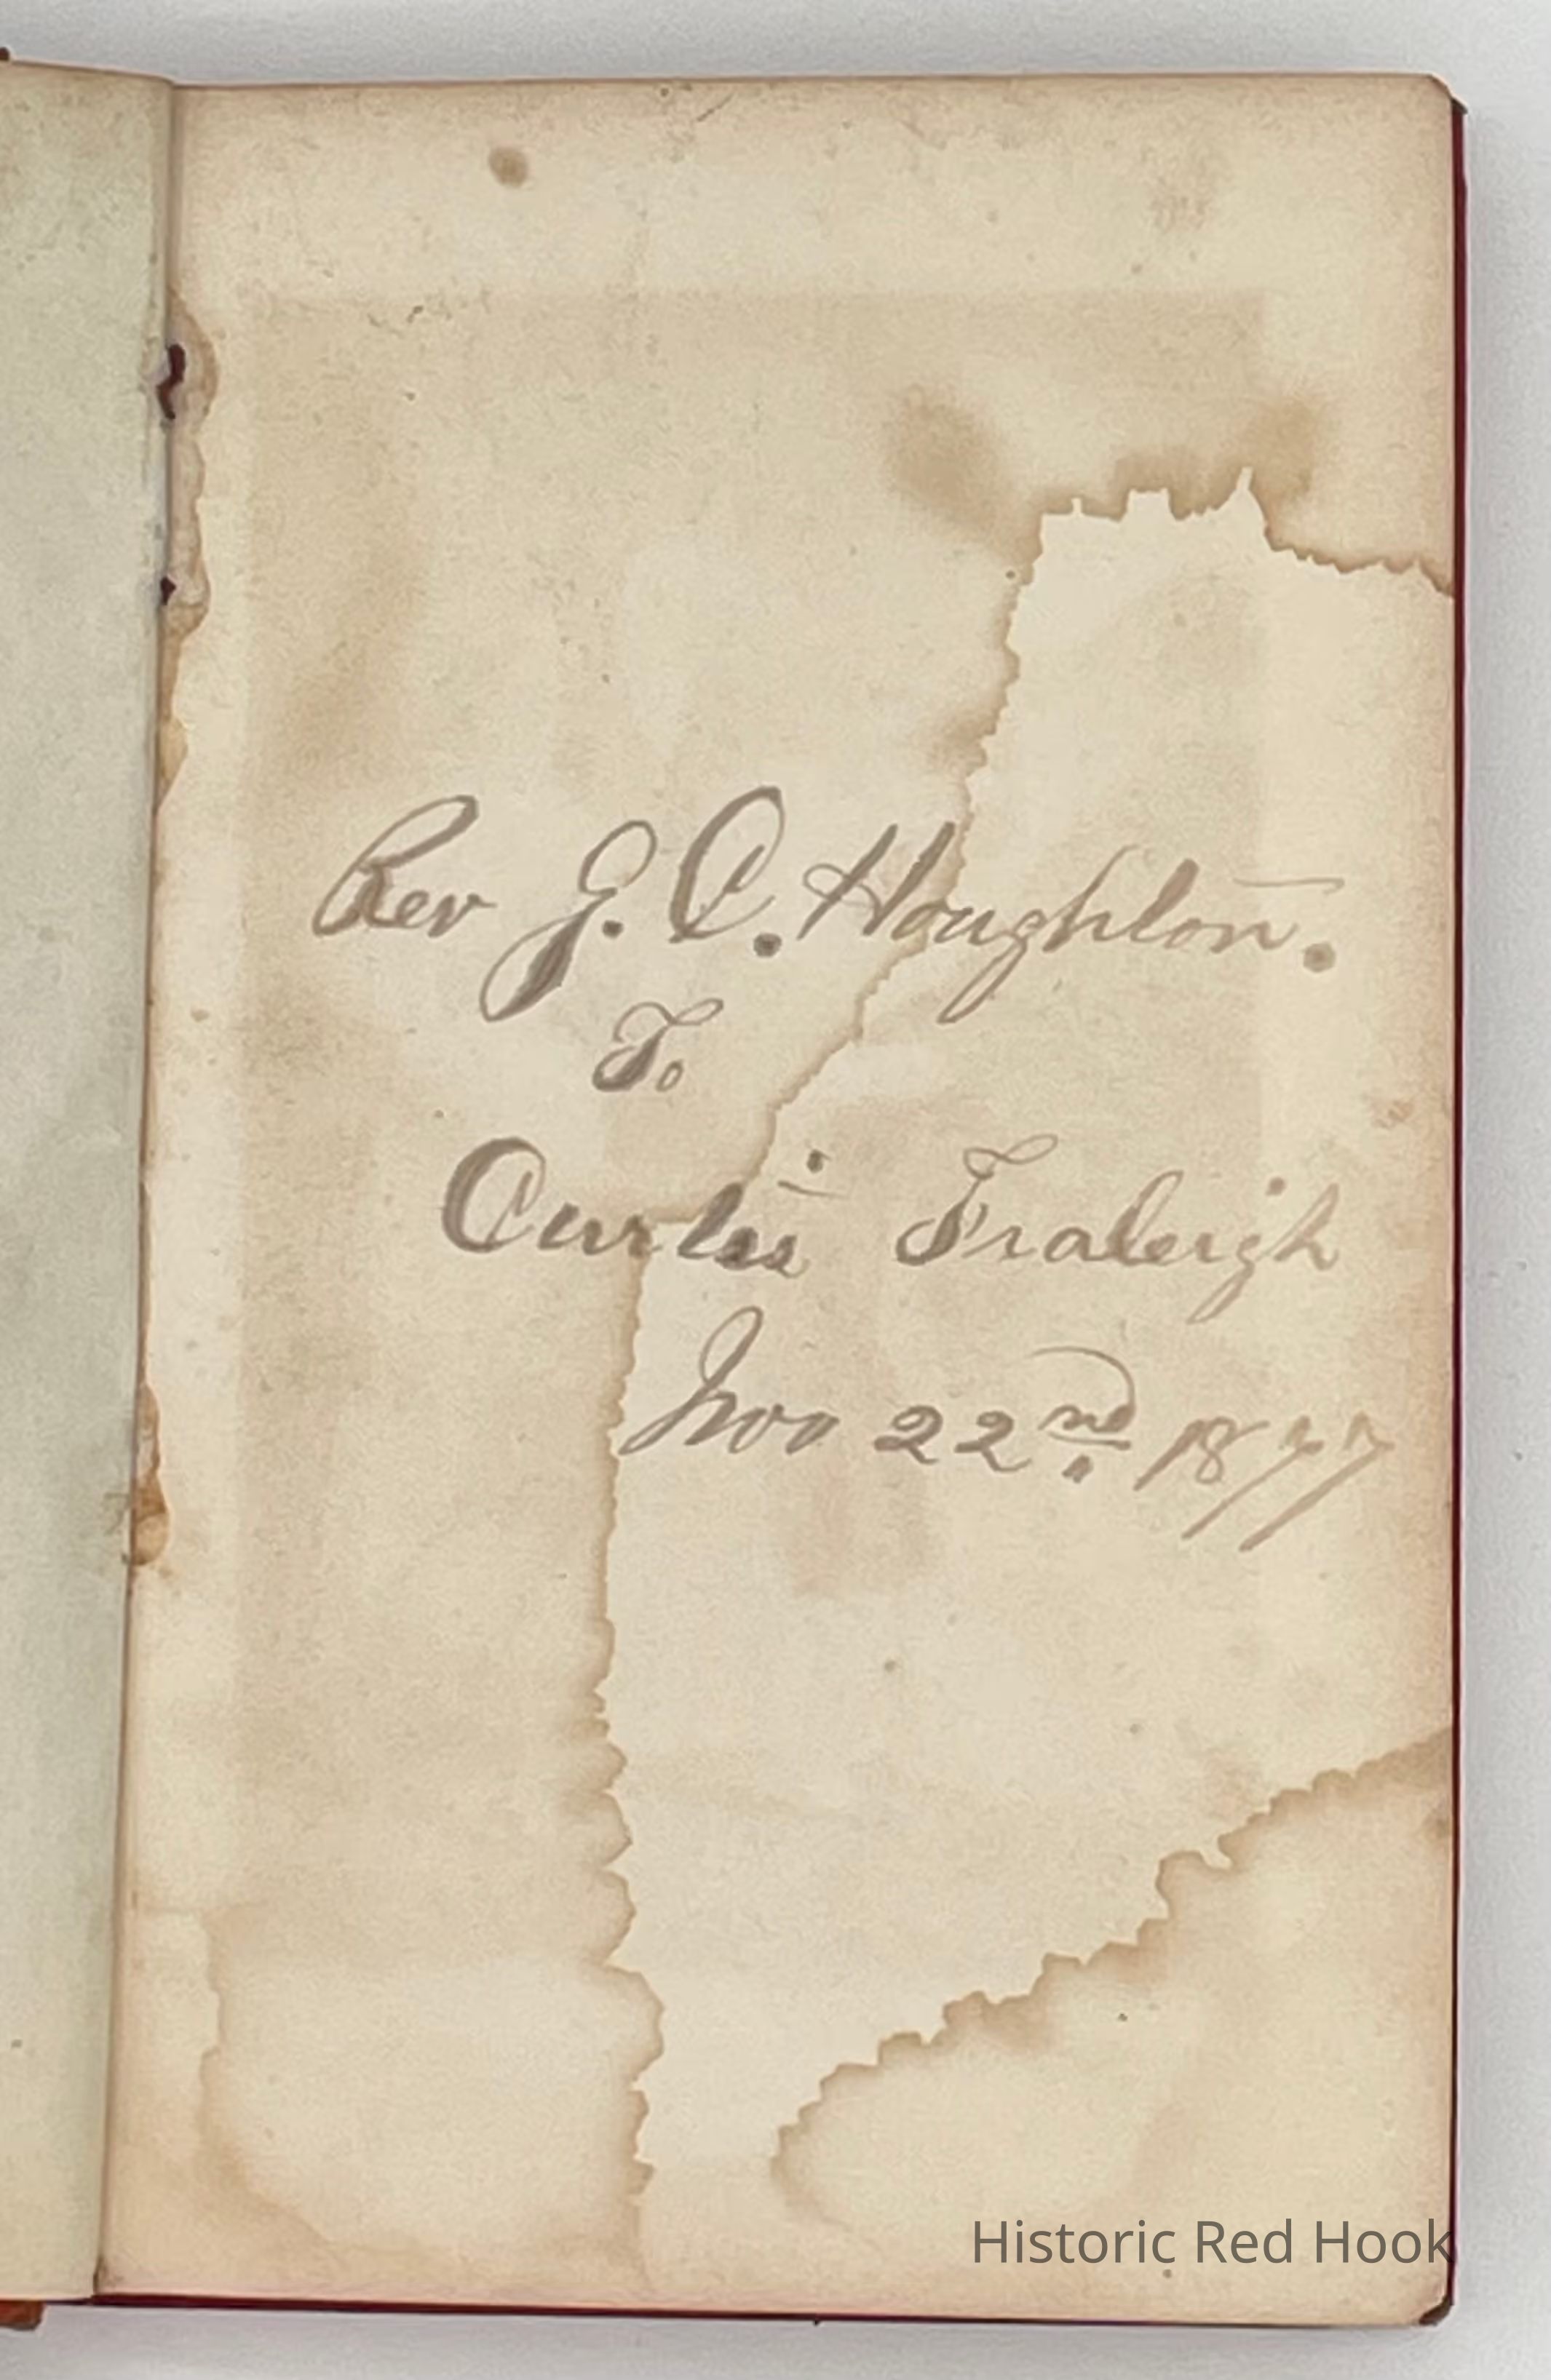 Rev J. C. Houghton.
To
Curtis Fraleigh
Nov 22nd 1877
Historic Red Hook